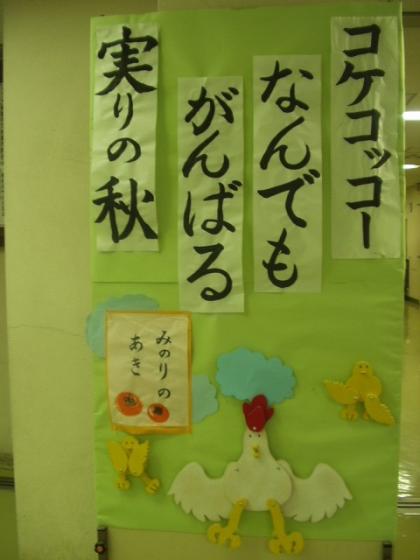 コケコッコー
なんでも
がんばる
実りの秋
みのりの
あき